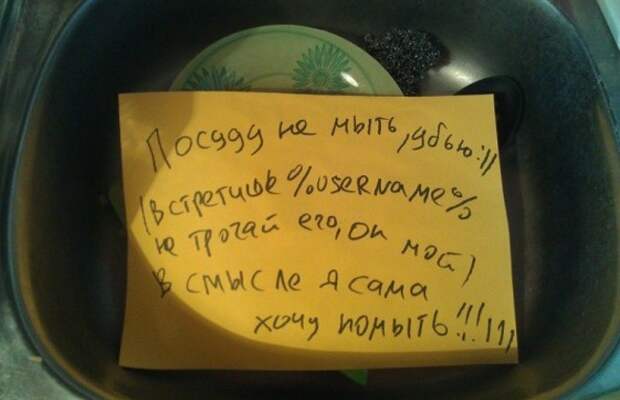 Посуду не мыть, убью!!!
(встретише %username%
не трогай его, он мой)
В смысле я сама
хочу помыть!!!111